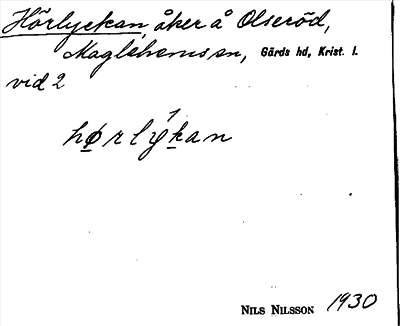 Hörlyckan, åker å Olseröd,
Maglehems sn, Gärds hd, Krist. l.
vid 2
hørlýkan
NILS NILSSON 1930